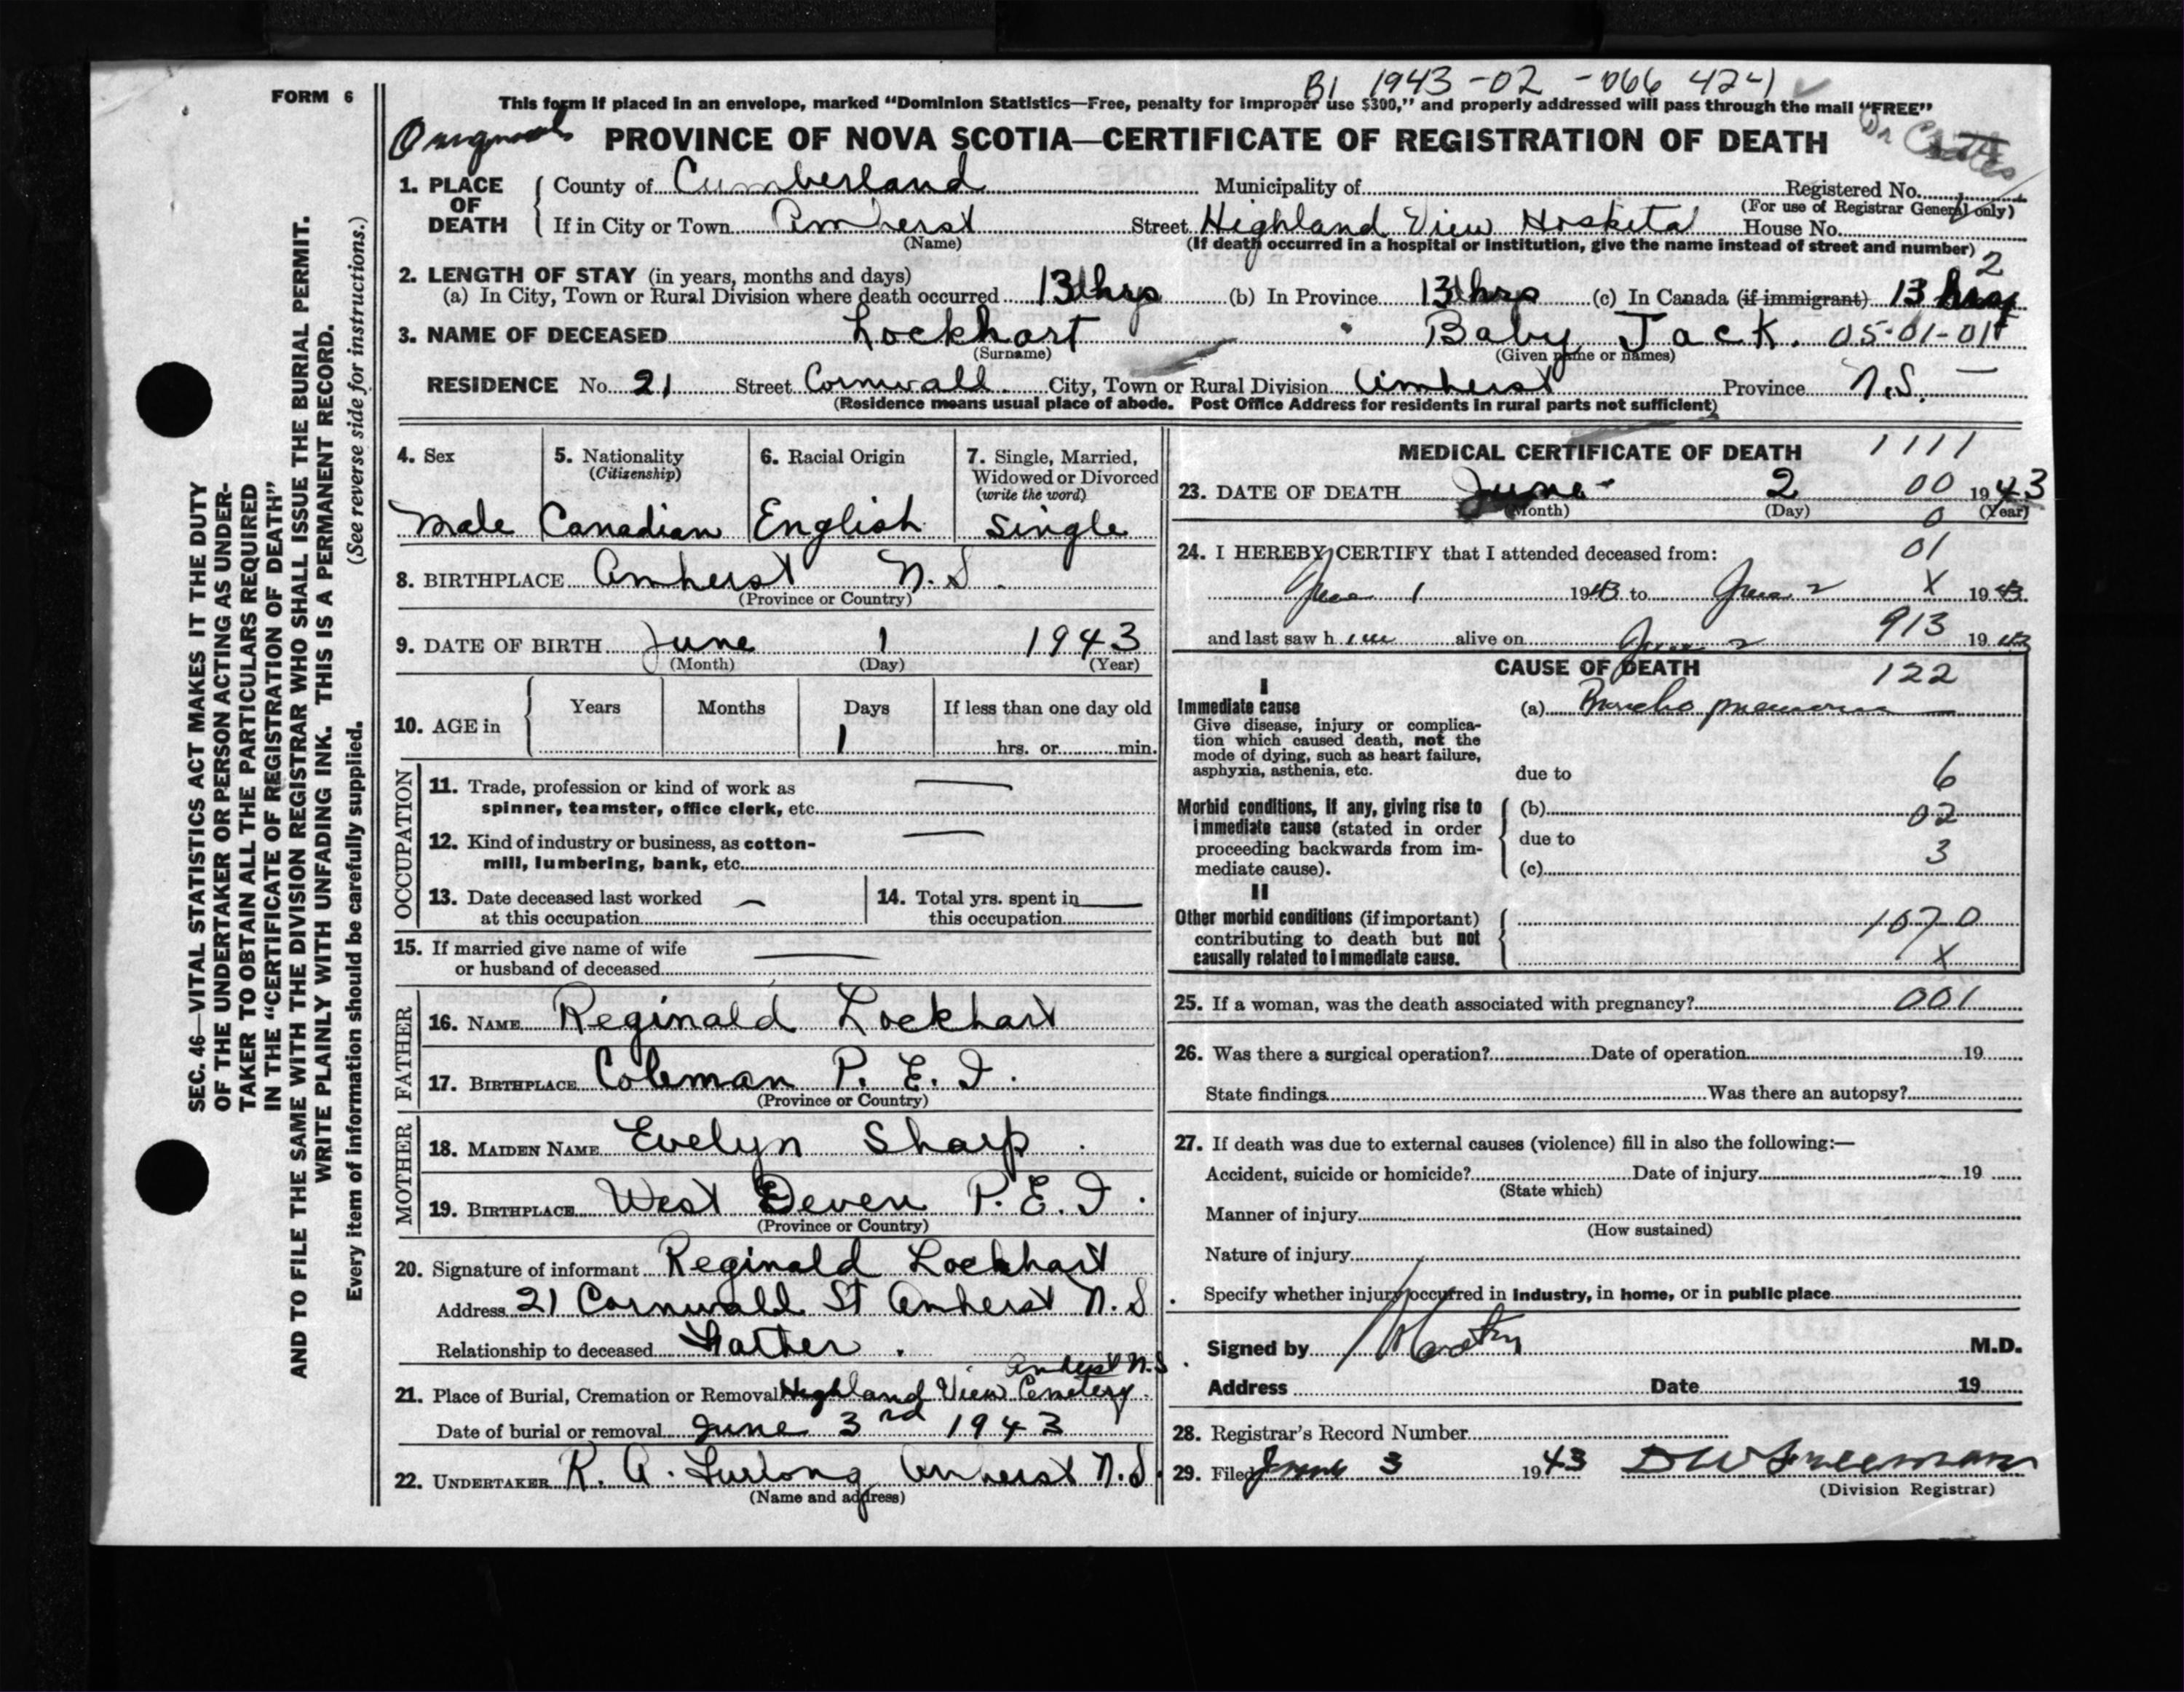 B1 1943-02-066424-1
FORM 6
This form if placed in an envelope, marked “Dominion Statistics—Free, penalty for improper use $300,” and properly addressed will pass through the mail “FREE”
PROVINCE OF NOVA SCOTIA—CERTIFICATE OF REGISTRATION OF DEATH
1. PLACE OF DEATH County of Cumberland Municipality of Registered No.
(For use of Registrar General only)
If in City or Town Amherst Street Highland View Hospital House No.
(Name) (If death occurred in a hospital or institution, give the name instead of street and number)
2. LENGTH OF STAY (in years, months and days) 2
(a) In City, Town or Rural Division where death occurred 13 hrs (b) In Province 13 hrs (c) In Canada (if immigrant) 13 hrs
3. NAME OF DECEASED Lockhart Baby Jack. 05-01-01
(Surname) (Given name or names)
RESIDENCE No. 21 Street Cornwall City, Town or Rural Division Amherst Province N.S.
(Residence means usual place of abode. Post Office Address for residents in rural parts not sufficient)
4. Sex 5. Nationality (Citizenship) 6. Racial Origin 7. Single, Married, Widowed or Divorced (write the word)
Male Canadian English Single
8. BIRTHPLACE Amherst N.S.
(Province or Country)
9. DATE OF BIRTH June 1 1943
(Month) (Day) (Year)
10. AGE in Years Months Days If less than one day old
1 hrs. or min.
OCCUPATION
11. Trade, profession or kind of work as —
spinner, teamster, office clerk, etc.
12. Kind of industry or business, as cotton- —
mill, lumbering, bank, etc.
13. Date deceased last worked — 14. Total yrs. spent in —
at this occupation this occupation
15. If married give name of wife —
or husband of deceased
FATHER
16. NAME Reginald Lockhart
17. BIRTHPLACE Coleman P.E.I.
(Province or Country)
MOTHER
18. MAIDEN NAME Evelyn Sharp
19. BIRTHPLACE West Deven P.E.I.
(Province or Country)
20. Signature of informant Reginald Lockhart
Address 21 Cornwall St Amherst N.S.
Relationship to deceased Father.
Amherst N.S.
21. Place of Burial, Cremation or Removal Highland View Cemetery.
Date of burial or removal June 3rd 1943
22. UNDERTAKER R. A. Furlong Amherst N.S.
(Name and address)
MEDICAL CERTIFICATE OF DEATH 1111
23. DATE OF DEATH June 2 00 1943
(Month) (Day) (Year)
0
24. I HEREBY CERTIFY that I attended deceased from: 01
June 1 1943 to June 2 X 1943
and last saw him alive on June 2 913 1943
CAUSE OF DEATH 122
I
Immediate cause (a) Broncho pneumonia
Give disease, injury or complica-
tion which caused death, not the
mode of dying, such as heart failure,
asphyxia, asthenia, etc. due to 6
Morbid conditions, if any, giving rise to (b) 02
immediate cause (stated in order due to
proceeding backwards from im- 3
mediate cause). (c)
II
Other morbid conditions (if important) 1070
contributing to death but not
causally related to immediate cause. X
25. If a woman, was the death associated with pregnancy? 001
26. Was there a surgical operation? Date of operation 19
State findings Was there an autopsy?
27. If death was due to external causes (violence) fill in also the following:—
Accident, suicide or homicide? Date of injury 19
(State which)
Manner of injury
(How sustained)
Nature of injury
Specify whether injury occurred in industry, in home, or in public place
Signed by M.D.
Address Date 19
28. Registrar's Record Number
29. Filed June 3 1943 D W Freeman
(Division Registrar)
SEC. 46—VITAL STATISTICS ACT MAKES IT THE DUTY
OF THE UNDERTAKER OR PERSON ACTING AS UNDER-
TAKER TO OBTAIN ALL THE PARTICULARS REQUIRED
IN THE “CERTIFICATE OF REGISTRATION OF DEATH”
AND TO FILE THE SAME WITH THE DIVISION REGISTRAR WHO SHALL ISSUE THE BURIAL PERMIT.
WRITE PLAINLY WITH UNFADING INK. THIS IS A PERMANENT RECORD.
Every item of information should be carefully supplied. (See reverse side for instructions.)